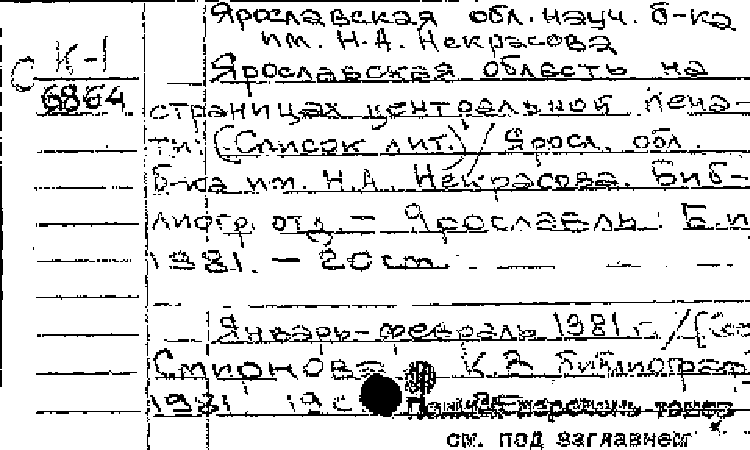 Ярославская обл. науч. б-ка
им. Н.А. Некрасова
С К-1
6864
Ярославская область на
страницах центральной печа-
ти (Список лит.) / Яросл. обл.
б-ка им. Н.А. Некрасова. Биб-
лиогр. отд. – Ярославль: Б.и
1981. – 20 см
Январь-февраль 1981 г. / [Со
К.З. Библиограф
1981
перечень томов
см. под заглавием